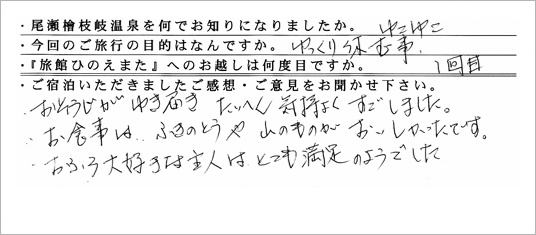 ・尾瀬檜枝岐温泉を何でお知りになりましたか。 ゆこゆこ
・今回のご旅行の目的はなんですか。 ゆっくり休む事.
・『旅館ひのえまた』へのお越しは何度目ですか。 1回目
・ご宿泊いただきましたご感想・ご意見をお聞かせ下さい。
・おそうじがゆき届きたいへん気持よくすごしました。
・お食事は、ふきのとうや山のものがおいしかったです。
・おふろ大好きな主人はとても満足のようでした